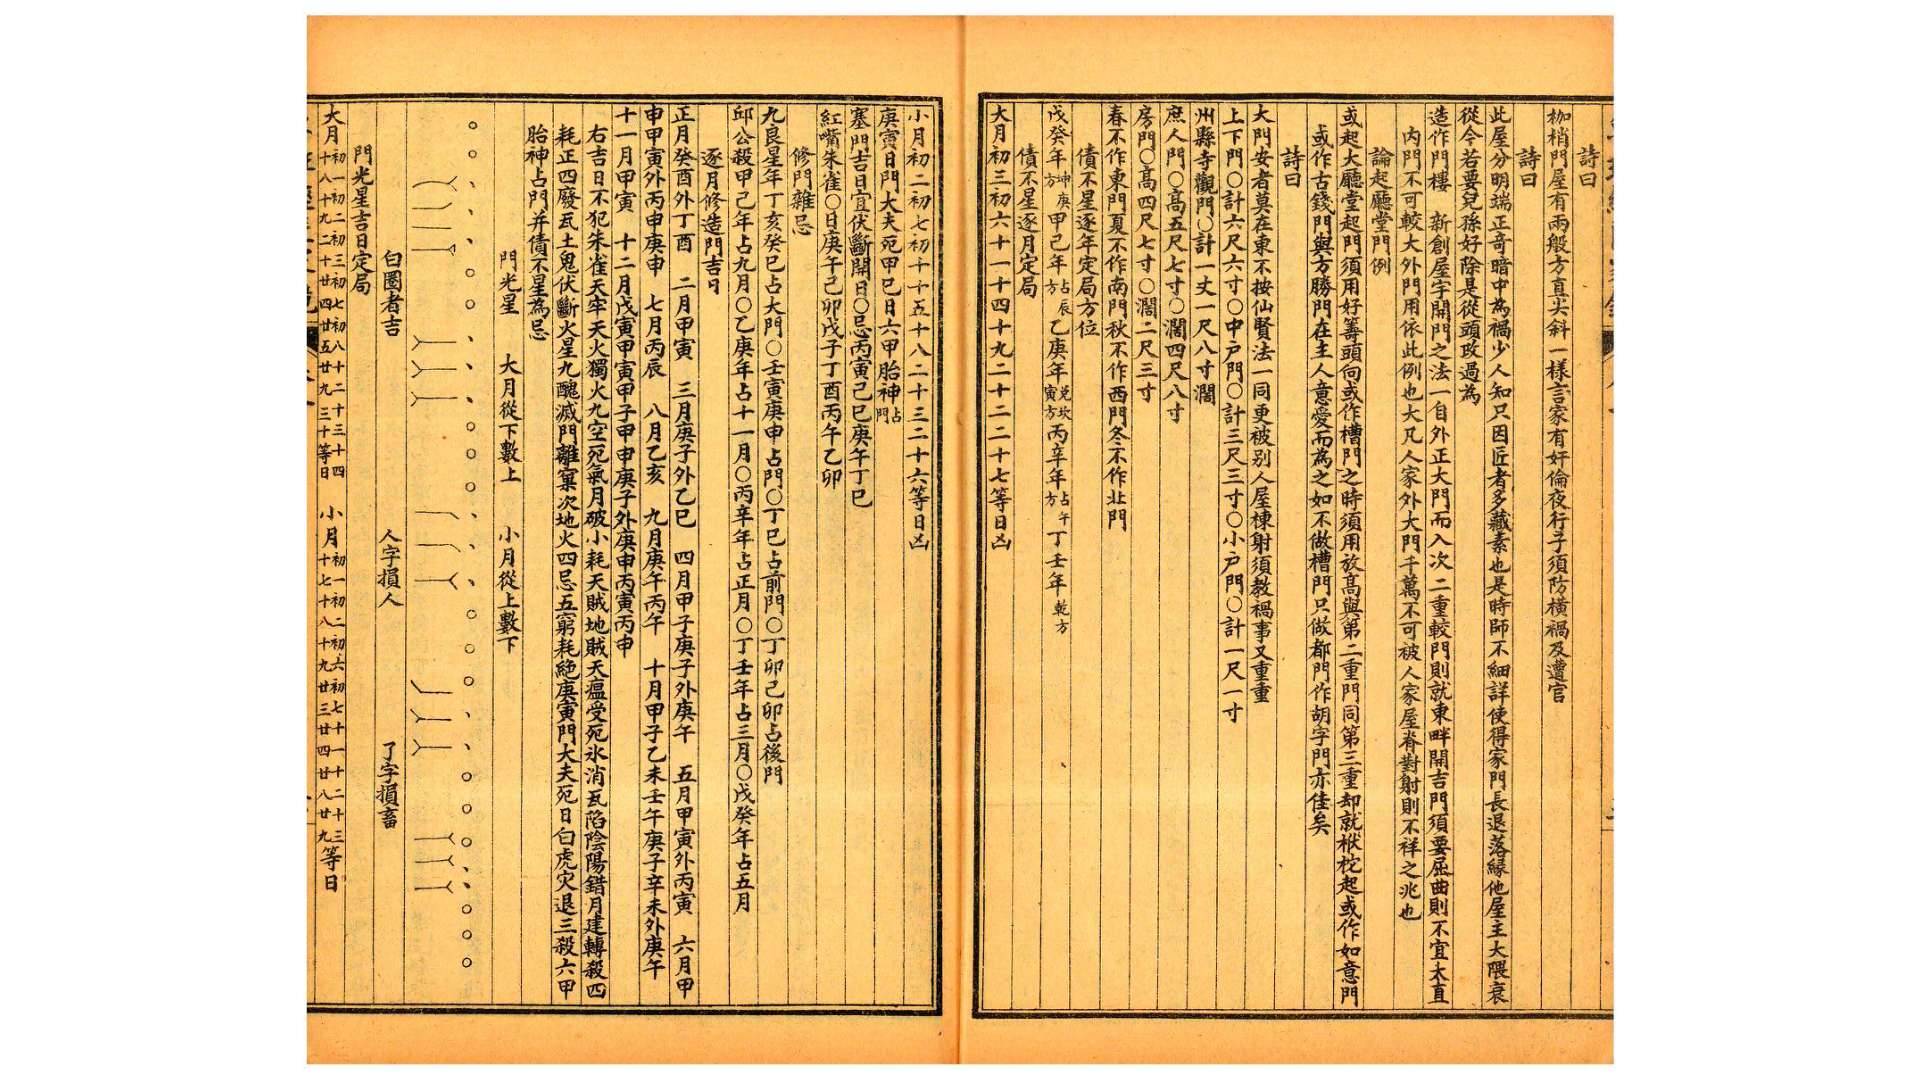 詩曰
枷梢門屋有兩般方直尖斜一樣言家有奸倫夜行子須防橫禍及遭官
詩曰
此屋分明端正奇暗中為禍少人知只因匠者多藏素也是時師不細詳使得家門長退落緣他屋主大隈衰
從今若要兒孫好除是從頭改過為
造作門樓　新創屋宇開門之法一自外正大門而入次二重較門則就東畔開吉門須要屈曲則不宜太直
內門不可較大外門用依此例也大凡人家外大門千萬不可被人家屋脊對射則不祥之兆也
論起廳堂門例
或起大廳堂起門須用好筭頭向或作槽門之時須用放高與第二重門同第三重却就栿柁起或作如意門
或作古錢門與方勝門在主人意愛而為之如不做槽門只做都門作胡字門亦佳矣
詩曰
大門安者莫在東不按仙賢法一同更被別人屋棟射須教禍事又重重
上下門〇計六尺六寸〇中户門〇計三尺三寸〇小户門〇計一尺一寸
州縣寺觀門〇計一丈一尺八寸濶
庶人門〇高五尺七寸〇濶四尺八寸
房門〇高四尺七寸〇濶二尺三寸
春不作東門夏不作南門秋不作西門冬不作北門
債不星逐年定局方位
戊癸年坤庚方甲己年占辰方乙庚年兌坎寅方丙辛年占午方丁壬年乾方
債不星逐月定局
大月初三初六十一十四十九二十二二十七等日凶
小月初二初七初十十五十八二十三二十六等日凶
庚寅日門大夫死甲巳日六甲胎神占門
塞門吉日宜伏斷閉日〇忌丙寅己巳庚午丁巳
紅嘴朱雀〇日庚午己卯戊子丁酉丙午乙卯
修門雜忌
九良星年丁亥癸巳占大門〇壬寅庚申占門〇丁巳占前門〇丁卯己卯占後門
邱公殺甲己年占九月〇乙庚年占十一月〇丙辛年占正月〇丁壬年占三月〇戊癸年占五月
逐月修造門吉日
正月癸酉外丁酉　二月甲寅　三月庚子外乙巳　四月甲子庚子外庚午　五月甲寅外丙寅　六月甲
申甲寅外丙申庚申　七月丙辰　八月乙亥　九月庚午丙午　十月甲子乙未壬午庚子辛未外庚午
十一月甲寅　十二月戊寅甲寅甲子甲申庚子外庚申丙寅丙申
右吉日不犯朱雀天牢天火獨火九空死氣月破小耗天賊地賊天瘟受死氷消瓦陷陰陽錯月建轉殺四
耗正四廢瓦土鬼伏斷火星九醜滅門離窠次地火四忌五窮耗絶庚寅門大夫死日白虎灾退三殺六甲
胎神占門并債不星為忌
門光星　大月從下數上　小月從上數下
白圈者吉　人字損人　了字損畜
門光星吉日定局
大月初一初二初三初七初八十二十三十四十八十九二十廿四廿五廿九三十等日　小月初一初二初六初七十一十二十三十七十八十九廿三廿四廿八廿九等日